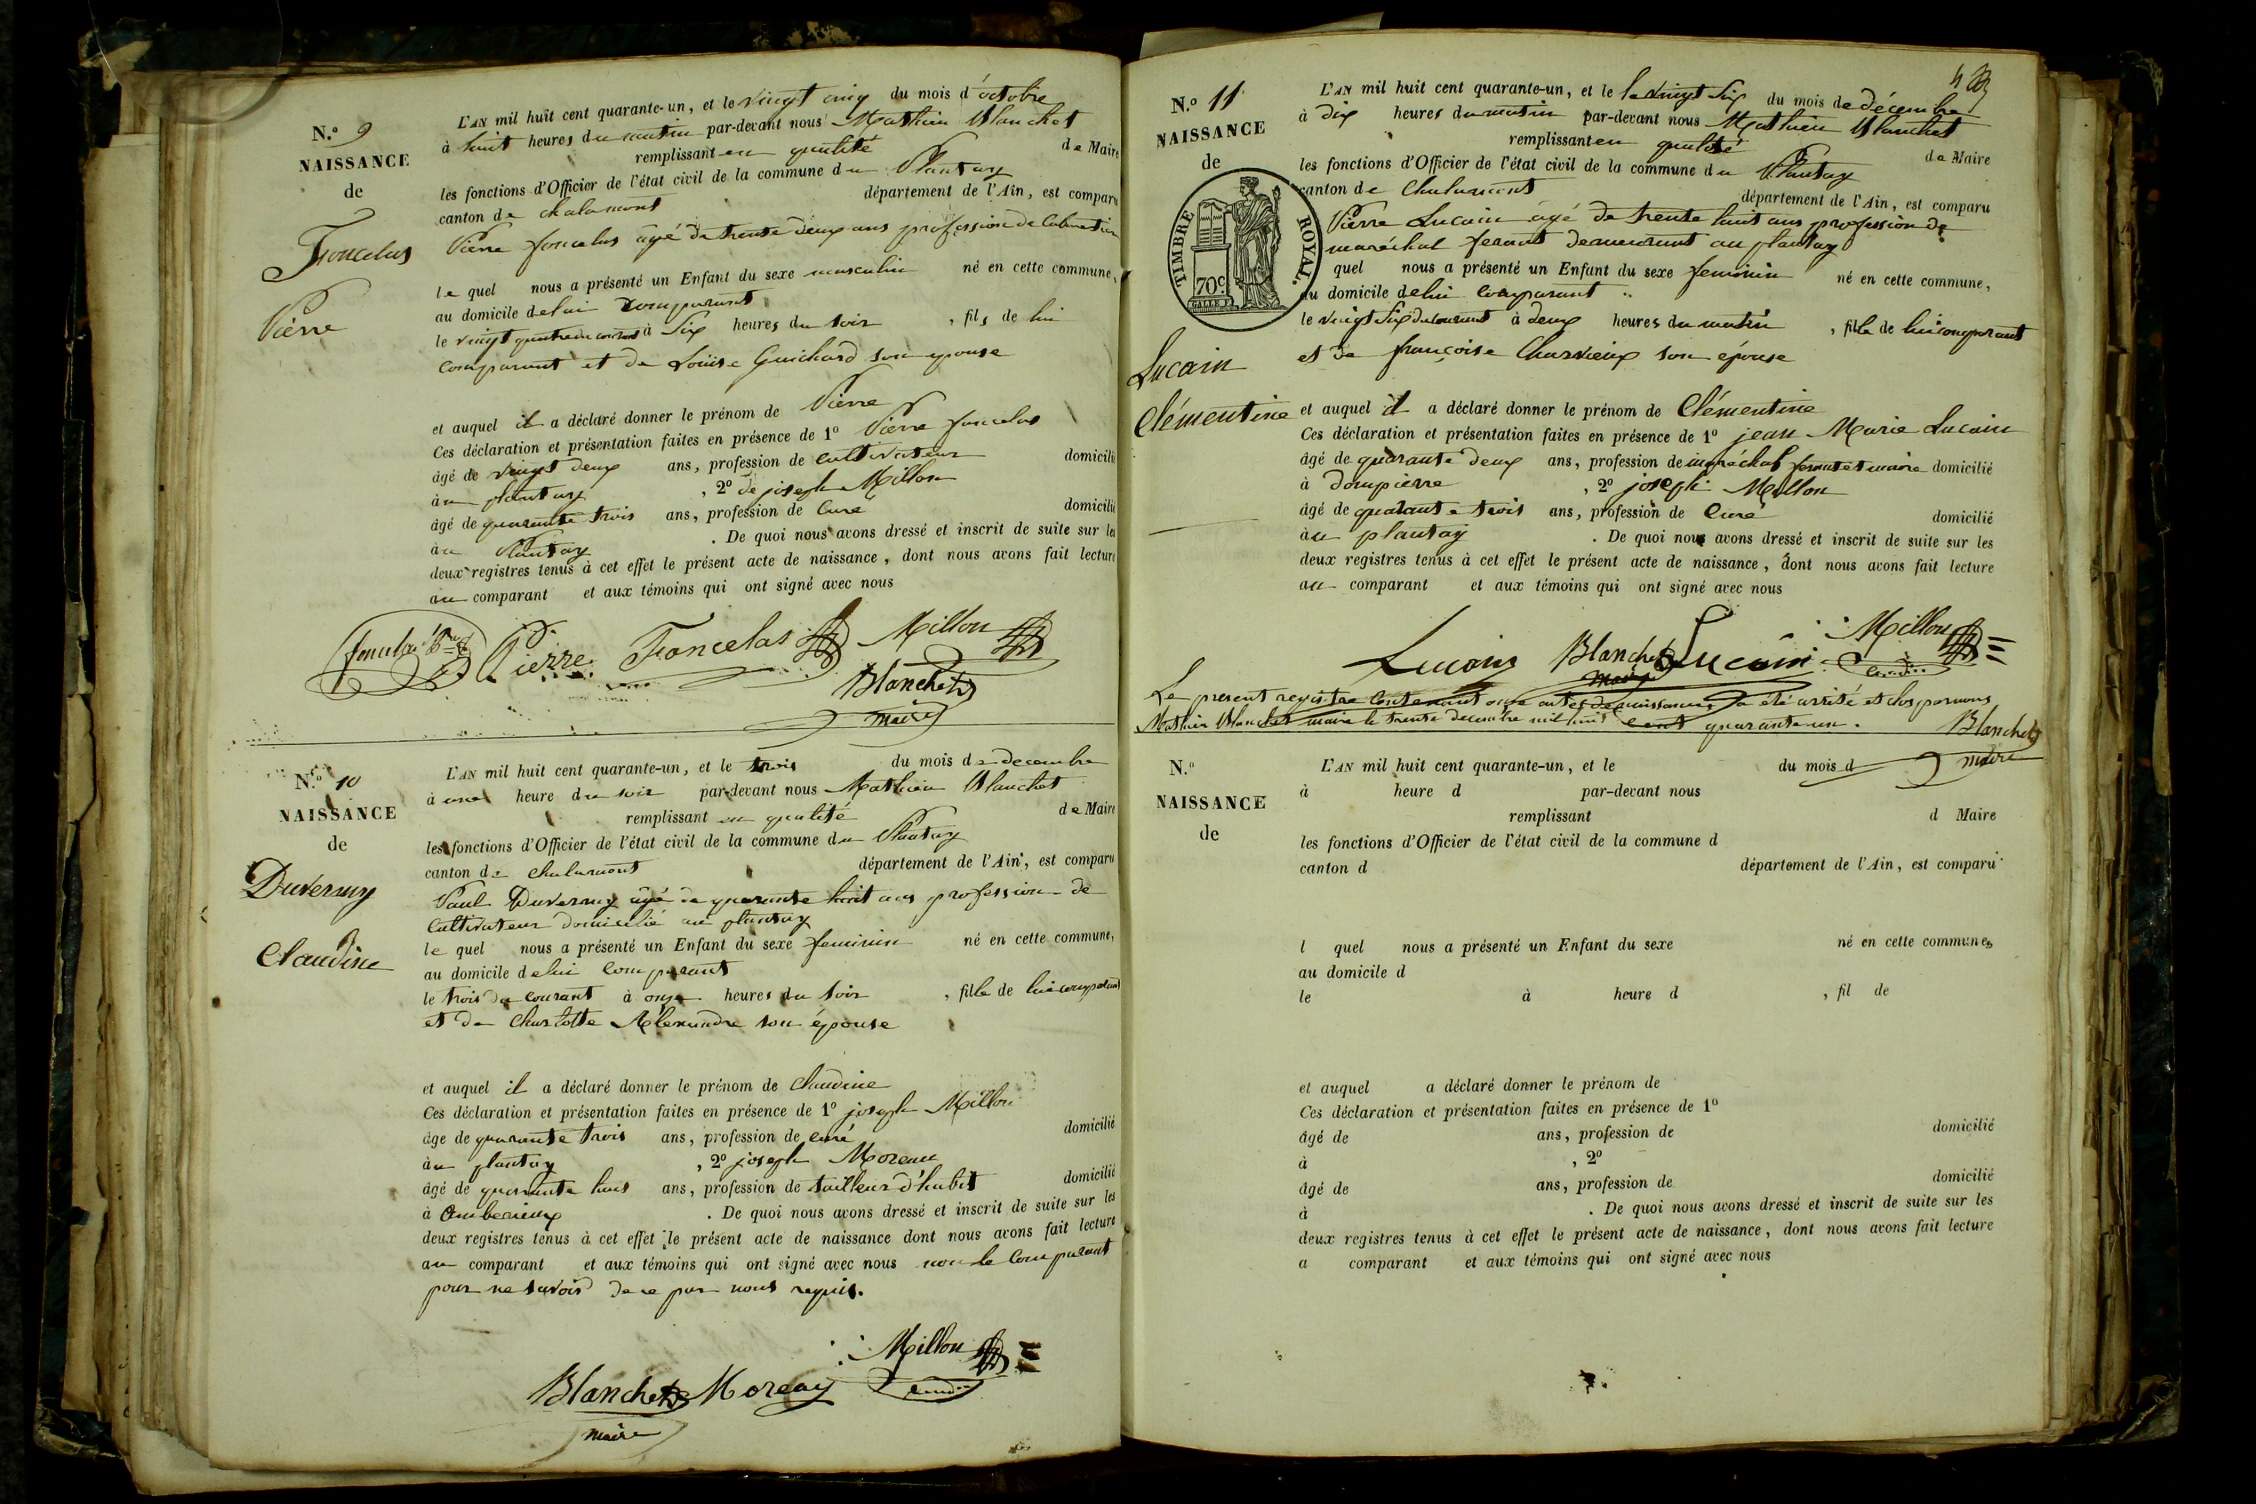 N.º 9
NAISSANCE
de
Foncelas
Pierre
L'AN mil huit cent quarante-un, et le vingt cinq du mois d'octobre
à huit heures du matin par-devant nous Mathieu Blanchet
remplissant en qualité de Maire
les fonctions d'Officier de l'état civil de la commune du Plantay
canton de chalamont département de l'Ain, est comparu
Pierre foncelas âgé de trente deux ans profession de Cultivateur
le quel nous a présenté un Enfant du sexe masculin né en cette commune,
au domicile de lui comparant
le vingt quatre du courant à Six heures du soir , fils de lui
comparant et de Louise Guichard son épouse
et auquel il a déclaré donner le prénom de Pierre
Ces déclaration et présentation faites en présence de 1º Pierre foncelas
âgé de vingt deux ans, profession de cultivateur domicilié
à au plantay , 2º de joseph Millon
âgé de quarante trois ans, profession de Curé domicilié
à au Plantay . De quoi nous avons dressé et inscrit de suite sur les
deux registres tenus à cet effet le présent acte de naissance, dont nous avons fait lecture
au comparant et aux témoins qui ont signé avec nous
foncelas Pierre Foncelas Millon
Blanchet
maire
N.º 10
NAISSANCE
de
Duvernay
Claudine
L'AN mil huit cent quarante-un, et le trois du mois de decembre
à une heure du soir par-devant nous Mathieu Blanchet
remplissant en qualité de Maire
les fonctions d'Officier de l'état civil de la commune du Plantay
canton de chalamont département de l'Ain, est comparu
Paul Duvernay âgé de quarante huit ans profession de
Cultivateur domicilié au plantay
le quel nous a présenté un Enfant du sexe feminin né en cette commune,
au domicile de lui comparant
le trois du courant à onze heures du soir , fille de lui comparant
et de Charlotte Alexandre son épouse
et auquel il a déclaré donner le prénom de Claudine
Ces déclaration et présentation faites en présence de 1º joseph Millon
âge de quarante trois ans, profession de curé domicilié
à au plantay , 2º joseph Moreau
âgé de quarante huit ans, profession de tailleur d'habit domicilié
à Amberieux . De quoi nous avons dressé et inscrit de suite sur les
deux registres tenus à cet effet le présent acte de naissance dont nous avons fait lecture
au comparant et aux témoins qui ont signé avec nous non le comparant
pour ne savoir de ce par nous requis.
Millon
Blanchet Moreau
maire
N.º 11
NAISSANCE
de
TIMBRE ROYAL.
70 c.
Lucain
Clémentine
L'AN mil huit cent quarante-un, et le le vingt Six du mois de décembre
à dix heures du matin par-devant nous Mathieu Blanchet
remplissant en qualité de Maire
les fonctions d'Officier de l'état civil de la commune du Plantay
canton de Chalamont département de l'Ain, est comparu
Pierre Lucain âgé de trente huit ans profession de
maréchal ferant demeurant au plantay
quel nous a présenté un Enfant du sexe feminin né en cette commune,
au domicile de lui comparant
le vingt Six du courant à deux heures du matin , fille de lui comparant
et de françoise Charvieux son épouse
et auquel il a déclaré donner le prénom de Clémentine
Ces déclaration et présentation faites en présence de 1º jean Marie Lucain
âgé de quarante deux ans, profession de maréchal ferant et maire domicilié
à Dompierre , 2º joseph Millon
âgé de quarante trois ans, profession de Curé domicilié
à au plantay . De quoi nous avons dressé et inscrit de suite sur les
deux registres tenus à cet effet le présent acte de naissance, dont nous avons fait lecture
au comparant et aux témoins qui ont signé avec nous
Lucain Blanchet Lucain Millon
maire
Le present registre Contenant onze actes de naissances a été arrêté et clos par nous
Mathieu Blanchet maire le trente decembre mil huit cent quarante un. Blanchet
maire
N.º
NAISSANCE
de
L'AN mil huit cent quarante-un, et le du mois d
à heure d par-devant nous
remplissant d Maire
les fonctions d'Officier de l'état civil de la commune d
canton d département de l'Ain, est comparu
l quel nous a présenté un Enfant du sexe né en cette commune,
au domicile d
le à heure d , fil de
et auquel a déclaré donner le prénom de
Ces déclaration et présentation faites en présence de 1º
âgé de ans, profession de domicilié
à , 2º
âgé de ans, profession de domicilié
à . De quoi nous avons dressé et inscrit de suite sur les
deux registres tenus à cet effet le présent acte de naissance, dont nous avons fait lecture
a comparant et aux témoins qui ont signé avec nous